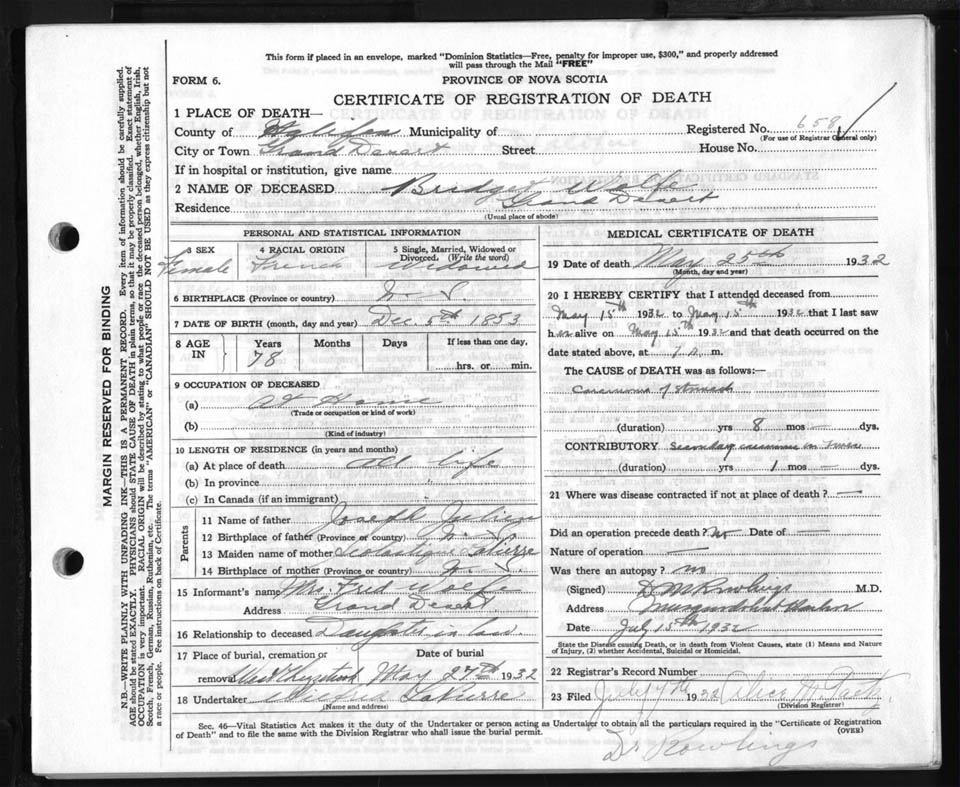 This form if placed in an envelope, marked "Dominion Statistics—Free, penalty for improper use, $300," and properly addressed
will pass through the Mail "FREE"
FORM 6.
PROVINCE OF NOVA SCOTIA
CERTIFICATE OF REGISTRATION OF DEATH
1 PLACE OF DEATH—
County of Halifax Municipality of
Registered No. 658
(For use of Registrar General only)
City or Town Grand Desert Street House No.
If in hospital or institution, give name
2 NAME OF DECEASED Bridget Wolfe
Residence Grand Desert
(Usual place of abode)
PERSONAL AND STATISTICAL INFORMATION
3 SEX 4 RACIAL ORIGIN 5 Single, Married, Widowed or Divorced. (Write the word)
Female French Widowed
6 BIRTHPLACE (Province or country) N. S.
7 DATE OF BIRTH (month, day and year) Dec. 5th 1853
8 AGE IN Years Months Days If less than one day,
78 hrs. or min.
9 OCCUPATION OF DECEASED
(a) At Home
(Trade or occupation or kind of work)
(b)
(Kind of industry)
10 LENGTH OF RESIDENCE (in years and months)
(a) At place of death all life
(b) In province "
(c) In Canada (if an immigrant)
Parents
11 Name of father Joseph Julien
12 Birthplace of father (Province or country) N. S.
13 Maiden name of mother Scolastique Lapierre
14 Birthplace of mother (Province or country) N. S.
15 Informant's name Mrs Fred Wolfe
Address Grand Desert
16 Relationship to deceased Daughter in law.
17 Place of burial, cremation or removal Date of burial
West Chezzetcook May 27th 1932
18 Undertaker Lapierre
(Name and address)
MEDICAL CERTIFICATE OF DEATH
19 Date of death May 25th 1932
(Month, day and year)
20 I HEREBY CERTIFY that I attended deceased from
May 15th 1932 to May 15th 1932 that I last saw
her alive on May 15th 1932 and that death occurred on the
date stated above, at m.
The CAUSE of DEATH was as follows:—
Carcinoma of Stomach
(duration) yrs 8 mos — dys.
CONTRIBUTORY Secondary carcinoma in
(duration) yrs 1 mos — dys.
21 Where was disease contracted if not at place of death? —
Did an operation precede death? No Date of —
Nature of operation —
Was there an autopsy? no
(Signed) D M Rowlings M.D.
Address Musquodoboit Harbor
Date July 15th 1932
State the Disease causing Death, or in death from Violent Causes, state (1) Means and Nature
of Injury, (2) whether Accidental, Suicidal or Homicidal.
22 Registrar's Record Number
23 Filed July 7th 1932 Alice
(Division Registrar)
Sec. 46—Vital Statistics Act makes it the duty of the Undertaker or person acting as Undertaker to obtain all the particulars required in the "Certificate of Registration
of Death" and to file the same with the Division Registrar who shall issue the burial permit.
(OVER)
Dr Rowlings
MARGIN RESERVED FOR BINDING
N.B.—WRITE PLAINLY WITH UNFADING INK—THIS IS A PERMANENT RECORD. Every item of information should be carefully supplied.
AGE should be stated EXACTLY. PHYSICIANS should STATE CAUSE OF DEATH in plain terms, so that it may be properly classified. Exact statement of
OCCUPATION is very important. RACIAL ORIGIN will be described by stating to what people or race the deceased person belonged, whether English, Irish,
Scotch, French, German, Russian, Ruthenian, etc. The terms "AMERICAN" or "CANADIAN" SHOULD NOT BE USED as they express citizenship but not
a race or people. See instructions on back of Certificate.